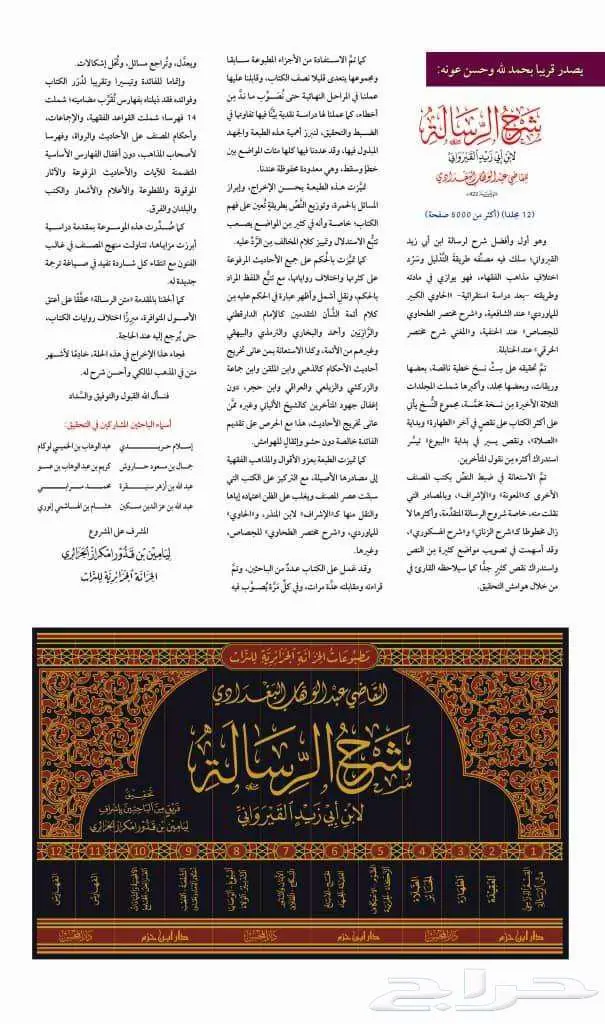 يصدر قريبا بحمد لله وحسن عونه:
شرح الرسالة
لابن أبي زيد القيرواني
للقاضي عبد الوهاب البغدادي
(12 مجلدا) (أكثر من 5000 صفحة)
وهو أول وأفضل شرح لرسالة ابن أبي زيد
القيرواني؛ سلك فيه مصنِّفه طريقةَ التَّدليل وسَرْد
اختلاف مذاهب الفقهاء، فهو يوازي في مادته
وطريقته -بعد دراسة استقرائية- «الحاوي الكبير
للماوردي» عند الشافعية، و«شرح مختصر الطحاوي
للجصاص» عند الحنفية، و«المغني شرح مختصر
الخرقي» عند الحنابلة.
تمَّ تحقيقه على ستِّ نسخ خطية ناقصة، بعضها
وريقات، وبعضها مجلد، وأكبرها شملت المجلدات
الثلاثة الأخيرة من نسخة مخمَّسة، مجموع النُّسخ يأتي
على أكثر الكتاب على نقص في آخر «الطهارة» وبداية
«الصلاة»، ونقص يسير في بداية «البيوع» تيسَّر
استدراك أكثره مِن نقول المتأخرين.
تمَّ الاستعانة في ضبط النصِّ بكتب المصنف
الأخرى كـ«المعونة» و«الإشراف»، وبالمصادر التي
نقلت منه، خاصة شروح الرسالة المتقدِّمة، وأكثرها لا
زال مخطوطا كـ«شرح الزناتي» و«شرح الهسكوري»،
وقد أسهمت في تصويب مواضع كثيرة مِن النص
واستدراك نقص كثيرٍ جدًّا كما سيلاحظه القارئ في
من خلال هوامش التحقيق.
كما تمَّ الاستفادة من الأجزاء المطبوعة سابقا
ومجموعها يتعدى قليلا نصف الكتاب، وقابلنا عليها
عملنا في المراحل النهائية حتى نُصَوِّب ما ندَّ مِن
أخطاء، كما عملنا لها دراسة نقدية بيَّنَّا فيها تفاوتها في
الضبط والتحقيق، لنبرز أهمية هذه الطبعة والجهد
المبذول فيها، وقد عددنا فيها كلها مئات المواضع بين
خطإ وسقط، وهي معدودة محفوظة عندنا.
تميَّزت هذه الطبعة بحسن الإخراج، وإبراز
المسائل بالحمرة، وتوزيع النَّصِّ بطريقةٍ تُعين على فهم
الكتاب؛ خاصة وأنه في كثير مِن المواضع يصعب
تتبُّع الاستدلال وتمييز كلام المخالف مِن الرَّدِّ عليه.
كما تميَّزت بالحكم على جميع الأحاديث المرفوعة
على كثرتها واختلاف رواياتها، مع تتبُّع اللفظ المراد
بالحكم، ونقلِ أشمل وأظهر عبارة في الحكم عليه مِن
كلام أئمة الشَّأن المتقدمين كالإمام الدارقطني
والرَّازيَين وأحمد والبخاري والترمذي والبيهقي
وغيرهم من الأئمة، وكذا الاستعانة بمن عانى تخريج
أحاديث الأحكام كالذهبي وابن الملقن وابن جماعة
والزركشي والزيلعي والعراقي وابن حجر، دون
إغفال جهود المتأخرين كالشيخ الألباني وغيره ممَّن
عانى تخريج الأحاديث، هذا مع الحرص على تقديم
الفائدة خالصة دون حشو وإثقالٍ للهوامش.
كما تميزت الطبعة بعزو الأقوال والمذاهب الفقهية
إلى مصادرها الأصيلة، مع التركيز على الكتب التي
سبقت عصر المصنف ويغلب على الظن اعتماده إياها
والنقل منها كـ«الإشراف» لابن المنذر، و«الحاوي»
للماوردي، و«شرح مختصر الطحاوي» للجصاص،
وغيرها.
وقد عَمل على الكتاب عددٌ من الباحثين، وتمَّ
قراءته ومقابلته عدَّة مرات، وفي كلِّ مَرَّة يُصوَّب فيه
ويعدَّل، وتُراجع مسائل، وتُحَل إشكالات.
وإتماما للفائدة وتيسيرا وتقريبا لدُرَر الكتاب
وفوائده فقد ذيلناه بفهارس تُقَرِّب مضامينه؛ شملت
14 فهرسا؛ شملت القواعد الفقهية، والإجماعات،
وأحكام المصنف على الأحاديث والرواة، وفهرسا
لأصحاب المذاهب، دون إغفال الفهارس الأساسية
المتضمنة للآيات والأحاديث المرفوعة والآثار
الموقوفة والمقطوعة والأعلام والأشعار والكتب
والبلدان والفرق.
كما صُدِّرت هذه الموسوعة بمقدمة دراسية
أبرزت مزاياها، تناولت منهج المصنف في غالب
الفنون مع انتقاء كل شاردة تفيد في صياغة ترجمة
جديدة له.
كما ألحقنا بالمقدمة «متن الرسالة» محقَّقًا على أعتق
الأصول المتوافرة، مبرِزًا اختلاف روايات الكتاب،
حتى يُرجع إليه عند الحاجة.
فجاء هذا الإخراج في هذه الحلة، خادِمًا لأشهر
متن في المذهب المالكي وأحسن شرح له.
فنسأل الله القبول والتوفيق والسَّداد
أسماء الباحثين المشاركين في التحقيق:
إسلام حريــدي عبد الوهاب بن الحبيبي لوكام
جمال بن مسعود حاروش كريم بن عبد الوهاب بن عمو
عبد الله بن أزهر سنيقرة محمد مرابـي
عبد الله بن عز الدين مسكين هشام بن الهاشمي لزوري
المشرف على المشروع
ليامين بن قدور امكراز الجزائري
الخزانة الجزائرية للتراث
مطبوعات الخزانة الجزائرية للتراث
القاضي عبد الوهاب البغدادي
شرح الرسالة
لابن أبي زيد القيرواني
تحقيق
فريق من الباحثين بإشراف
ليامين بن قدور امكراز الجزائري
1 2 3 4 5 6 7 8 9 10 11 12
العقيدة
الطهارة
الصلاة
الجنائز
الفهارس
الفهارس
دار ابن حزم دار المحسن دار ابن حزم دار المحسن دار ابن حزم دار المحسن
حراج